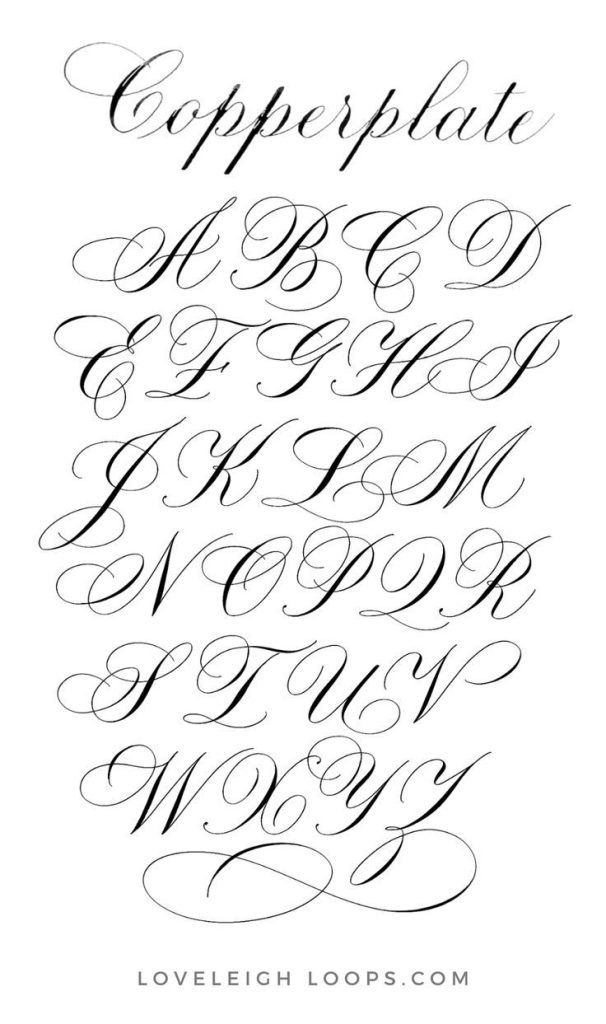 Copperplate
A B C D
E F G H I
J K L M
N O P Q R
S T U V
W X Y Z
LOVELEIGH LOOPS.COM